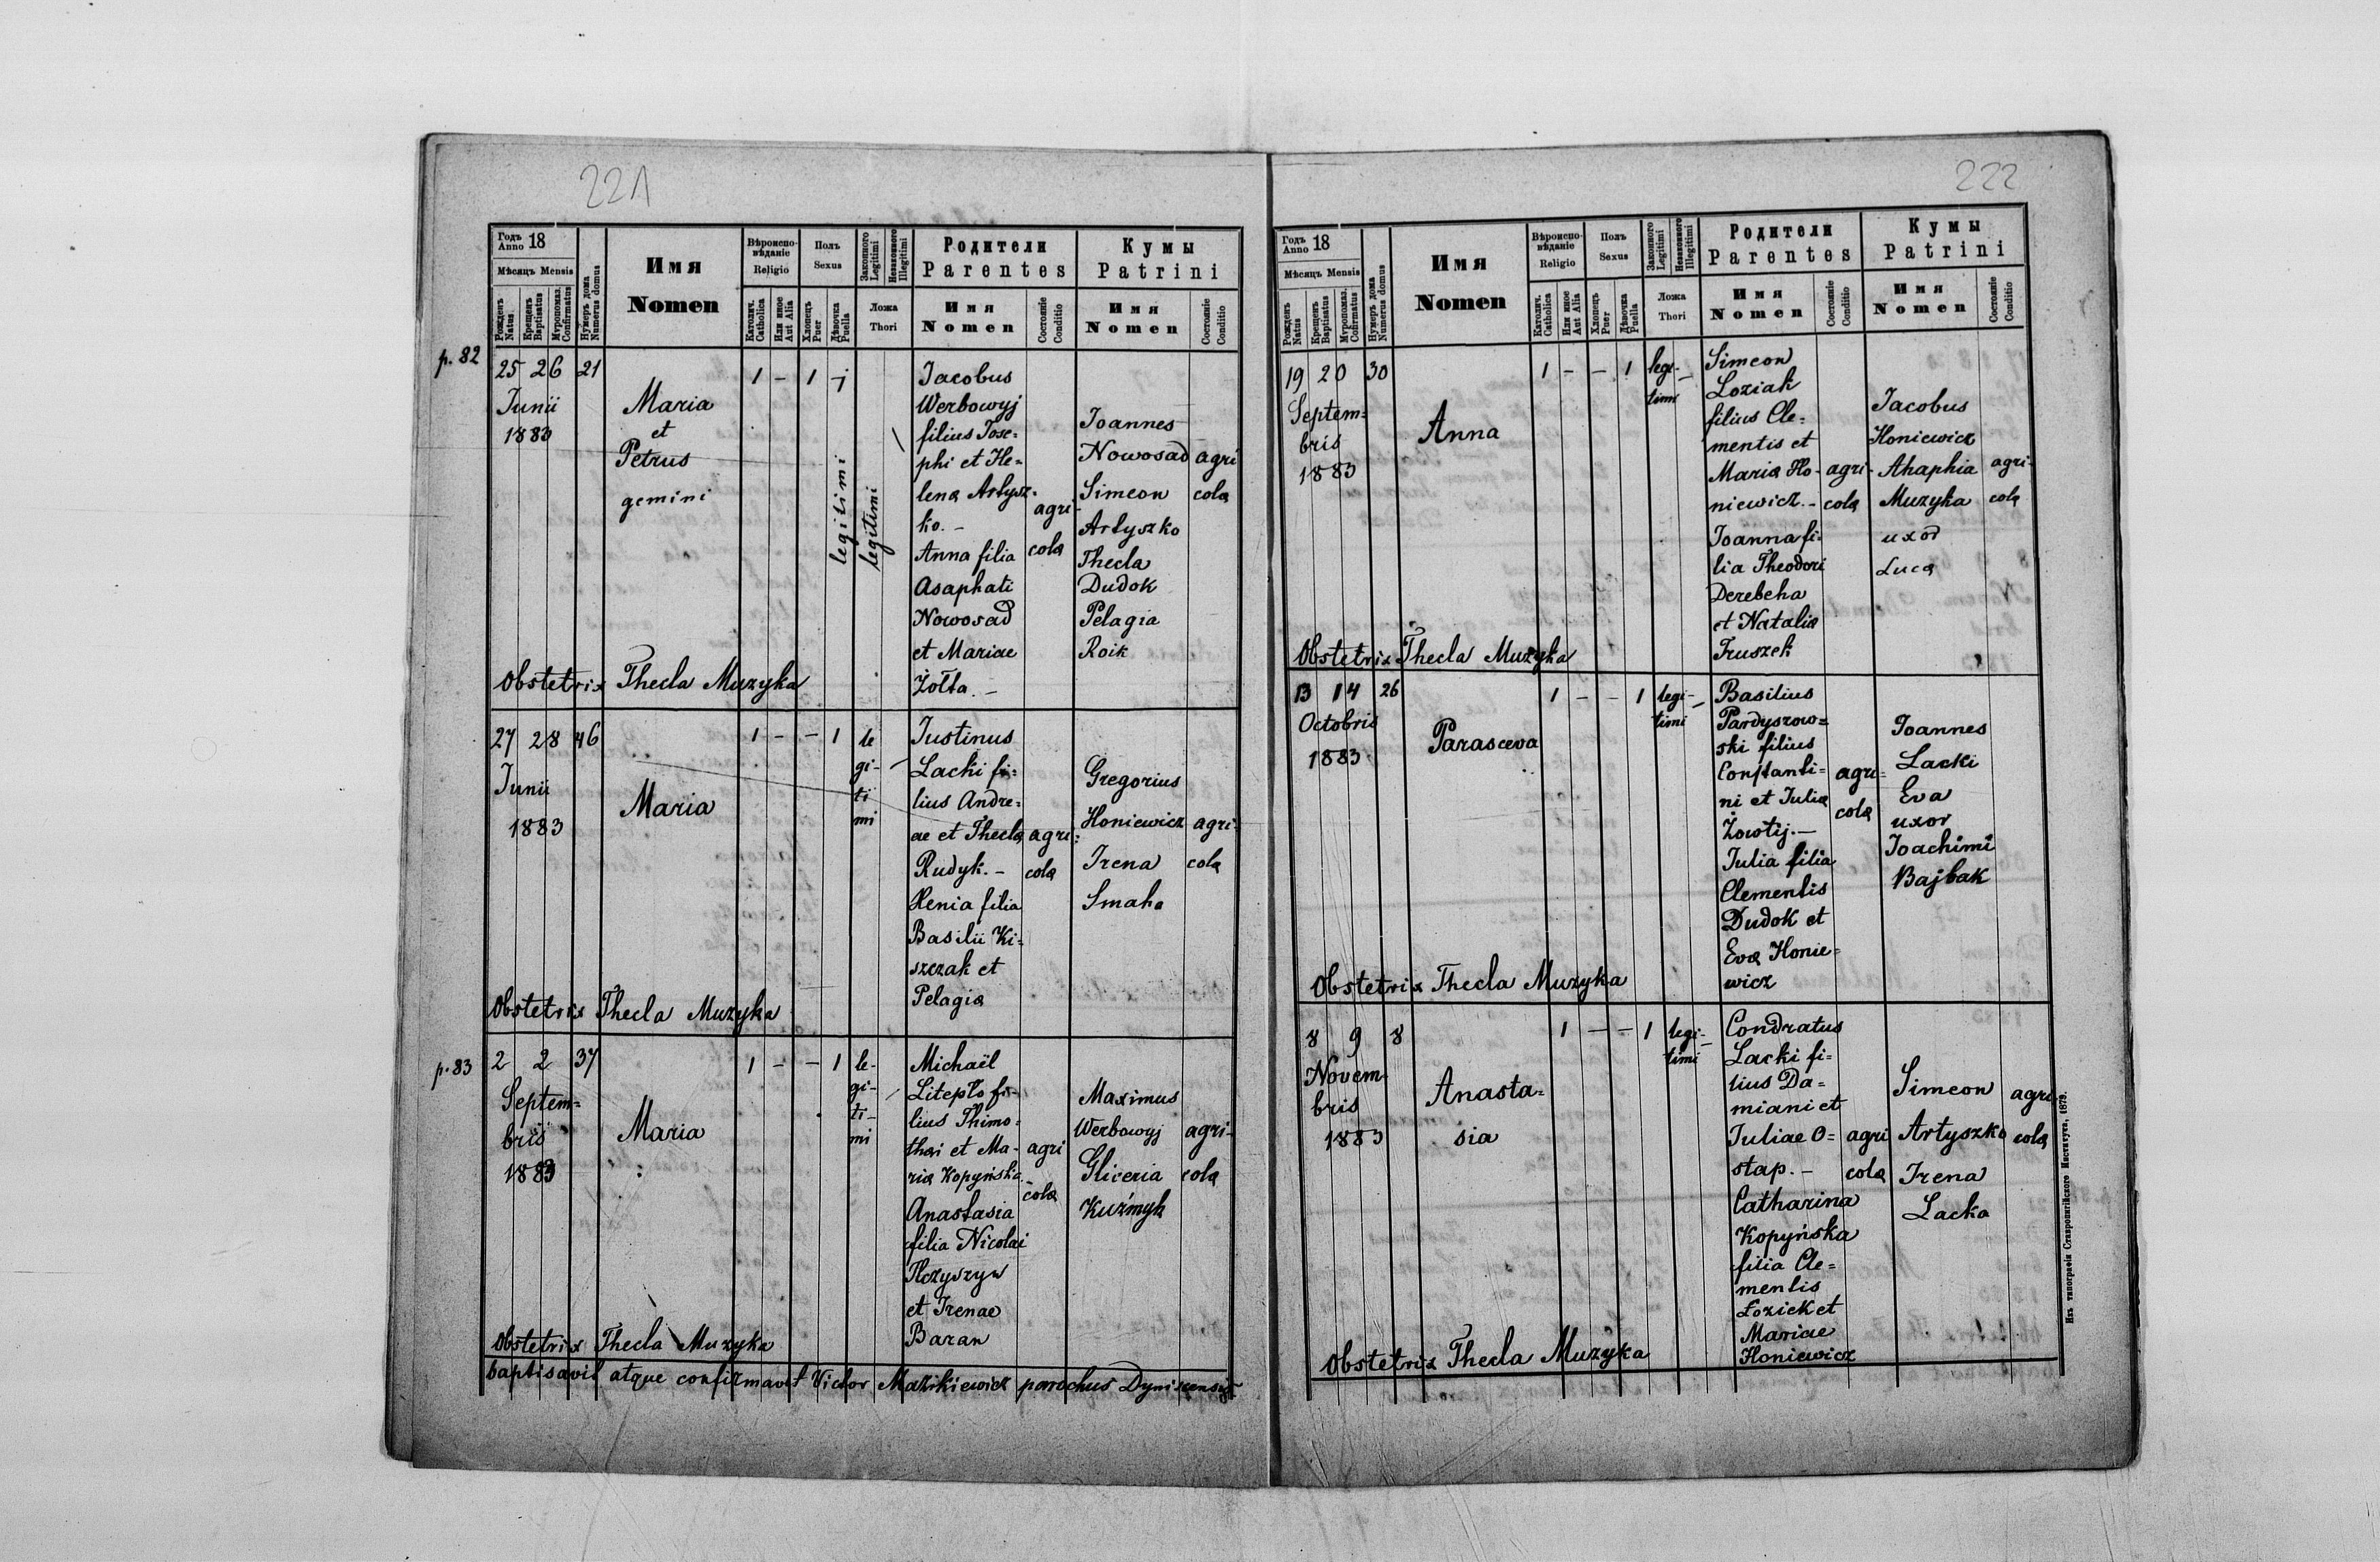 221
Годъ Anno 18
Мѣсяцъ Mensis
Рожденъ Natus
Крещенъ Baptisatus
Мѵропомаз. Confirmatus
Нумеръ дома Numerus domus
Имя
Nomen
Вѣроиспо-
вѣданіе
Religio
Католич. Catholica
Или иное Aut Alia
Полъ
Sexus
Хлопецъ Puer
Дѣвочка Puella
Законного Legitimi
Незаконного Illegitimi
Ложа
Thori
Родители
Parentes
Имя
Nomen
Состояніе Conditio
Кумы
Patrini
Имя
Nomen
Состояніе Conditio
p. 82
25 26 21
Junii
1883
Maria
et
Petrus
gemini
1 - 1 1
legitimi
legitimi
Jacobus
Werbowyj
filius Jose=
phi et He=
lena Artysz=
ko. -
Anna filia
Asaphati
Nowosad
et Mariae
Żołta. -
agri-
cola
Joannes
Nowosad
Simeon
Artyszko
Thecla
Dudok
Pelagia
Roik
agri
cola
Obstetrix Thecla Muzyka
27 28 46
Junii
1883
Maria
1 - - 1
le
gi-
ti
mi
Justinus
Lacki fi=
lius Andre=
ae et Thecla
Rudyk. -
Xenia filia
Basilii Ki=
szczak et
Pelagia
agri=
cola
Gregorius
Honiewicz
Irena
Smaha
agri-
cola
Obstetrix Thecla Muzyka
p. 83
2 2 37
Septem=
bris
1883
Maria
1 - - 1
le-
gi-
ti-
mi
Michaël
Litepło fi-
lius Thimo=
thei et Ma-
ria Kopyńska
Anastasia
filia Nicolai
Ilczyszyn
et Irenae
Baran
agri
cola
Maximus
Werbowyj
Gliceria
Kuźmyk
agri-
cola
Obstetrix Thecla Muzyka
baptisavit atque confirmavit Victor Mazikiewicz parochus
222
Годъ Anno 18
Мѣсяцъ Mensis
Рожденъ Natus
Крещенъ Baptisatus
Мѵропомаз. Cofirmatus
Нумеръ дома Numerus domus
Имя
Nomen
Вѣроиспо-
вѣданіе
Religio
Католич. Catholica
Или иное Aut Alia
Полъ
Sexus
Хлопецъ Puer
Дѣвочка Puella
Законного Legitimi
Незаконного Illegitimi
Ложа
Thori
Родители
Parentes
Имя
Nomen
Состояніе Conditio
Кумы
Patrini
Имя
Nomen
Состояніе Conditio
19 20 30
Septem=
bris
1883
Anna
1 - - 1
legi-
timi
Simeon
Loziak
filius Cle=
mentis et
Maria Ho-
niewicz. -
Joanna fi-
lia Theodori
Derebeha
et Natalia
Fruszek
agri-
cola
Jacobus
Honiewicz
Ahaphia
Muzyka
uxor
Luca
agri-
cola
Obstetrix Thecla Muzyka
13 14 26
Octobris
1883
Parasceva
1 - - 1
legi-
timi
Basilius
Pardyszow=
ski filius
Constanti=
ni et Julia
Żowtij. -
Julia filia
Clementis
Dudok et
Eva Honie=
wicz
agri=
cola
Joannes
Lacki
Eva
uxor
Joachimi
Bajbak
Obstetrix Thecla Muzyka
8 9 8
Novem-
bris
1883
Anasta=
sia
1 - - 1
legi-
timi
Condratus
Lacki fi=
lius Da=
miani et
Juliae O=
stap. -
Catharina
Kopyńska
filia Cle=
mentis
Łoziek et
Mariae
Honiewicz
agri
cola
Simeon
Artyszko
Irena
Lacka
agri-
cola
Obstetrix Thecla Muzyka
Изъ типографіи Ставропигійского Института, 1879.